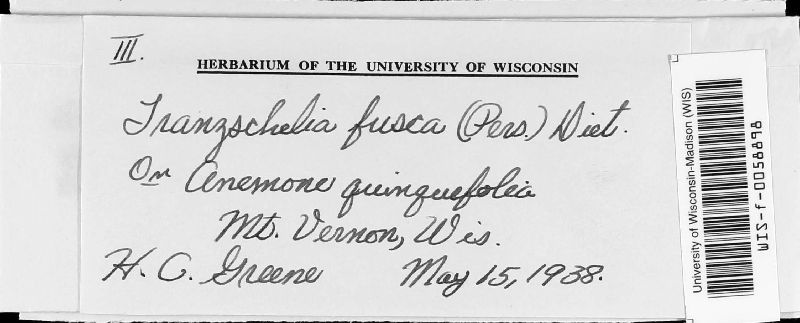 III.
HERBARIUM OF THE UNIVERSITY OF WISCONSIN
Tranzschelia fusca (Pers.) Diet.
On Anemone quinquefolia
Mt. Vernon, Wis.
H. C. Greene May 15, 1938.
University of Wisconsin-Madison (WIS)
WIS-f-0058898